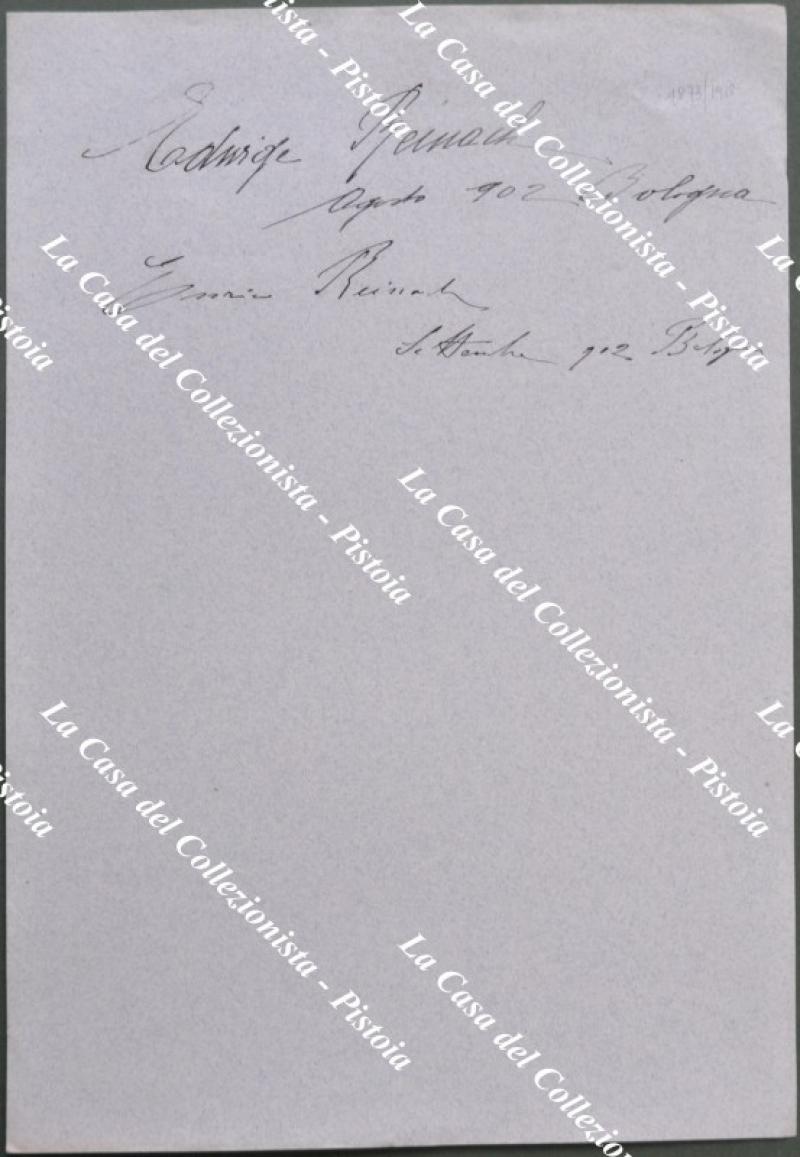 1873/1918
Edwige Reinach
Agosto 902 Bologna
Enrico Reinach
Settembre 902 Bologna
La Casa del Collezionista - Pistoia
La Casa del Collezionista - Pistoia
La Casa del Collezionista - Pistoia
La Casa del Collezionista - Pistoia
La Casa del Collezionista
ista - Pistoia
istoia
istoia
La C
La C